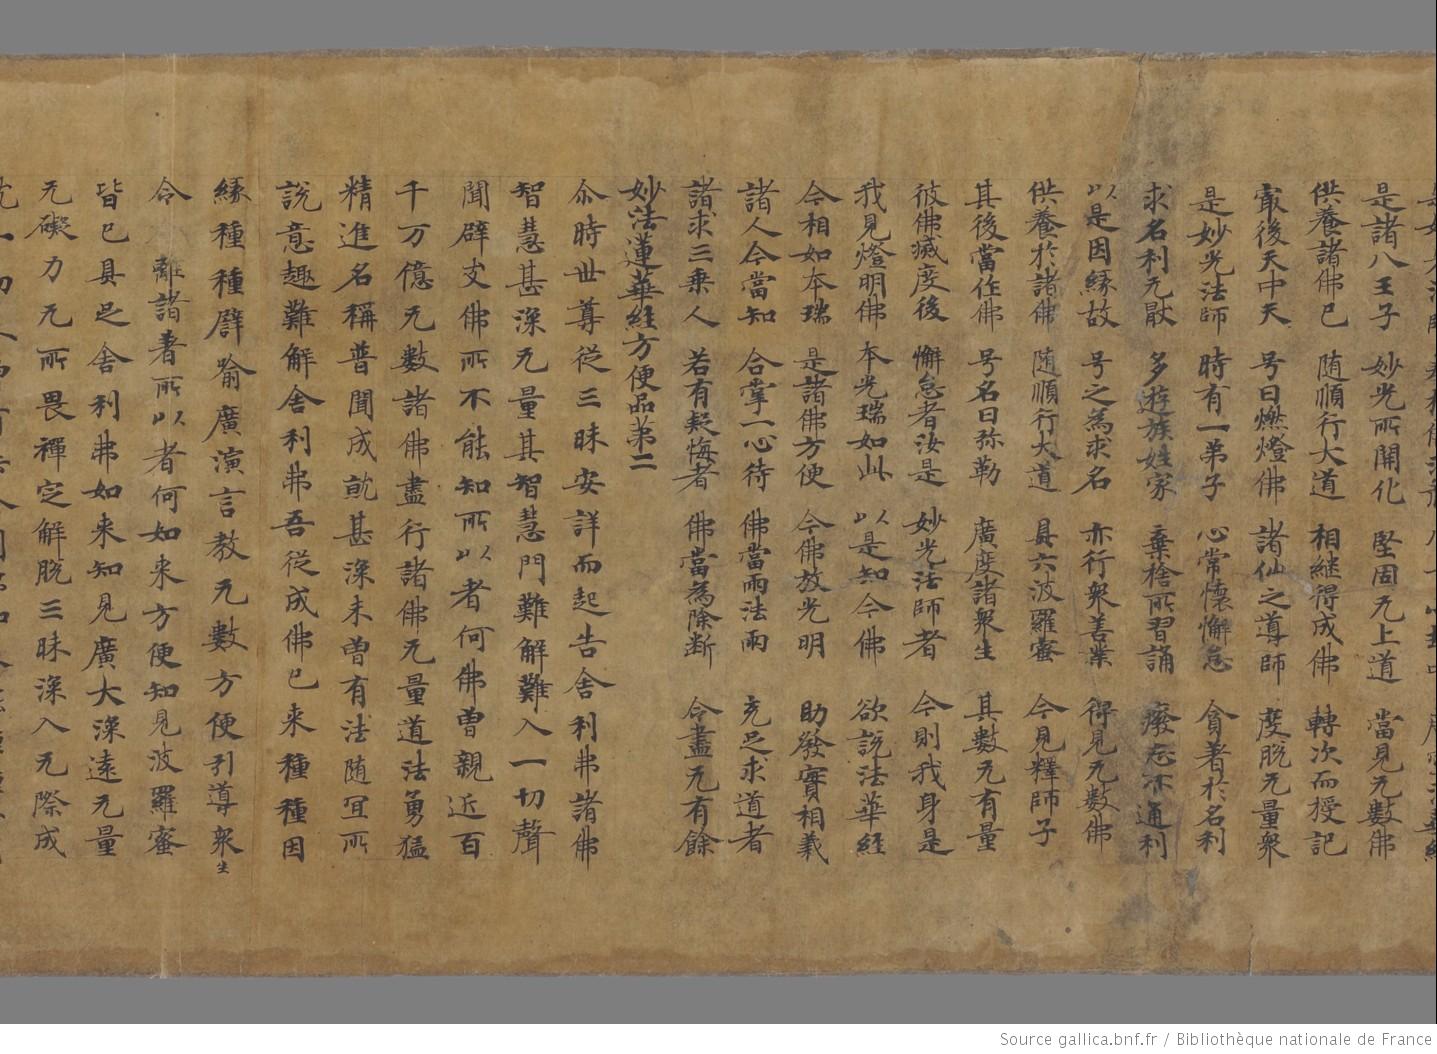 是諸八王子 妙光所開化 堅固无上道 當見无數佛
供養諸佛已 随順行大道 相継得成佛 轉次而授記
冣後天中天 号曰燃燈佛 諸仙之導師 度脱无量衆
是妙光法師 時有一弟子 心常懷懈怠 貪著於名利
求名利无猒 多遊族姓家 棄捨所習誦 癈忘不通利
以是因縁故 号之為求名 亦行衆善業 得見无數佛
供養於諸佛 随順行大道 具六波羅蜜 今見釋師子
其後當作佛 号名曰弥勒 廣度諸衆生 其數无有量
彼佛滅度後 懈怠者汝是 妙光法師者 今則我身是
我見燈明佛 本光瑞如此 以是知今佛 欲說法華経
今相如本瑞 是諸佛方便 今佛放光明 助發實相義
諸人今當知 合掌一心待 佛當雨法雨 充足求道者
諸求三乗人 若有疑悔者 佛當為除断 令盡无有餘
妙法蓮華経方便品第二
尒時世尊從三昧安詳而起告舎利弗諸佛
智慧甚深无量其智慧門難解難入一切聲
聞辟支佛所不能知所以者何佛曽親近百
千万億无數諸佛盡行諸佛无量道法勇猛
精進名稱普聞成就甚深未曽有法随冝所
說意趣難解舎利弗吾從成佛已来種種因
縁種種辟喻廣演言教无數方便引導衆生
令離諸著所以者何如来方便知見波羅蜜
皆已具足舎利弗如来知見廣大深遠无量
无礙力无所畏禪定解脱三昧深入无際成
Source gallica.bnf.fr / Bibliothèque nationale de France